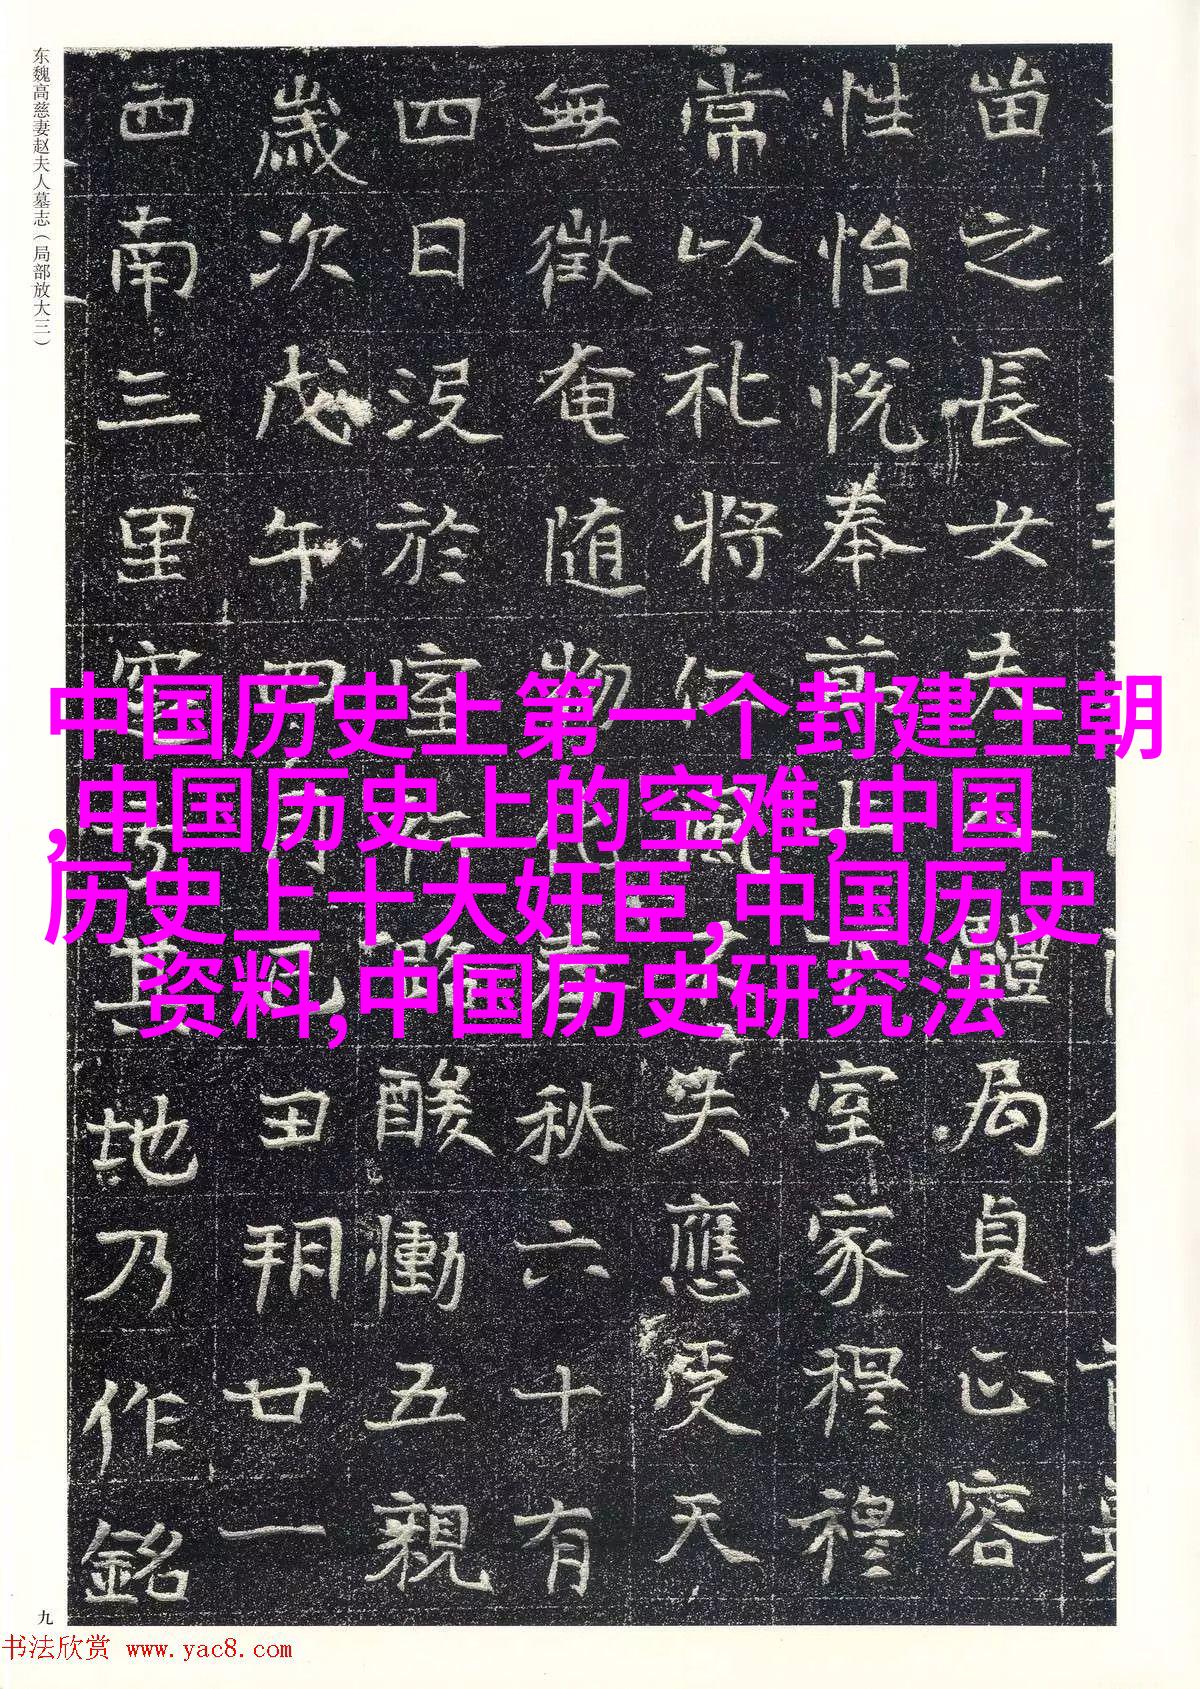 东魏高慈妻赵夫人墓志（局部放大三）
苗之長女夫體局貞正容
性怡悦奉室家穆穆
常以礼将風失應受天
無徵奄随物化春秋六十有
四日没於室酸慟五親
歲次戊午四月己丑朔廿一
西南三里地乃作銘
中国历史上第一个封建王朝
,中国历史上的空难,中国
历史上十大奸臣,中国历史
资料,中国历史研究法
九
书法欣赏 www.yac8.com